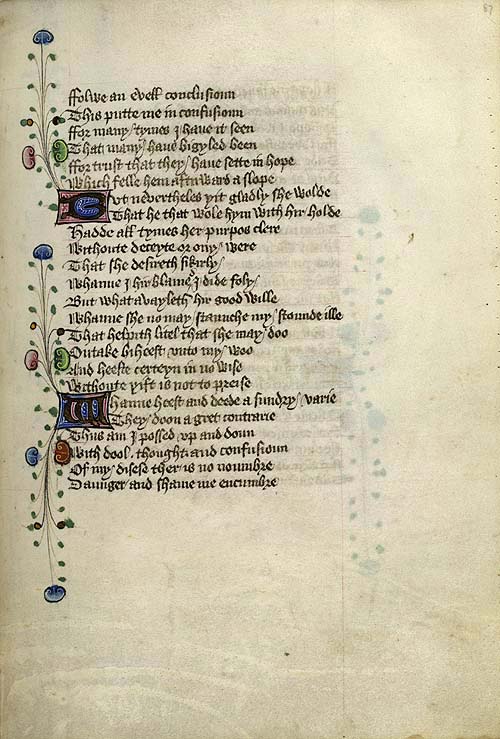 87
ffolwe an evell conclusioun
This putte me in confusioun
ffor many tymes I have it seen
That many have bigyled been
ffor trust that they have sette in hope
Which felle hem aftirward a slope
But nevertheles yit gladly she wolde
That he that wole hym with hir holde
Hadde all tymes her purpos clere
Withoute deceyte or ony were
That she desireth sikirly
Whanne I hir blamed I dide foly
But what avayleth hir good wille
Whanne she no may staunche my stounde ille
That helpith litel that she may doo
Outake biheest unto my woo
And heeste certeyn in no wise
Withoute yift is not to preise
Whanne heest and deede a sundry varie
They doon a gret contrarie
Thus am I possed up and doun
With dool, thought and confusioun
Of my disese ther is no noumbre
Daunger and shame me encumbre